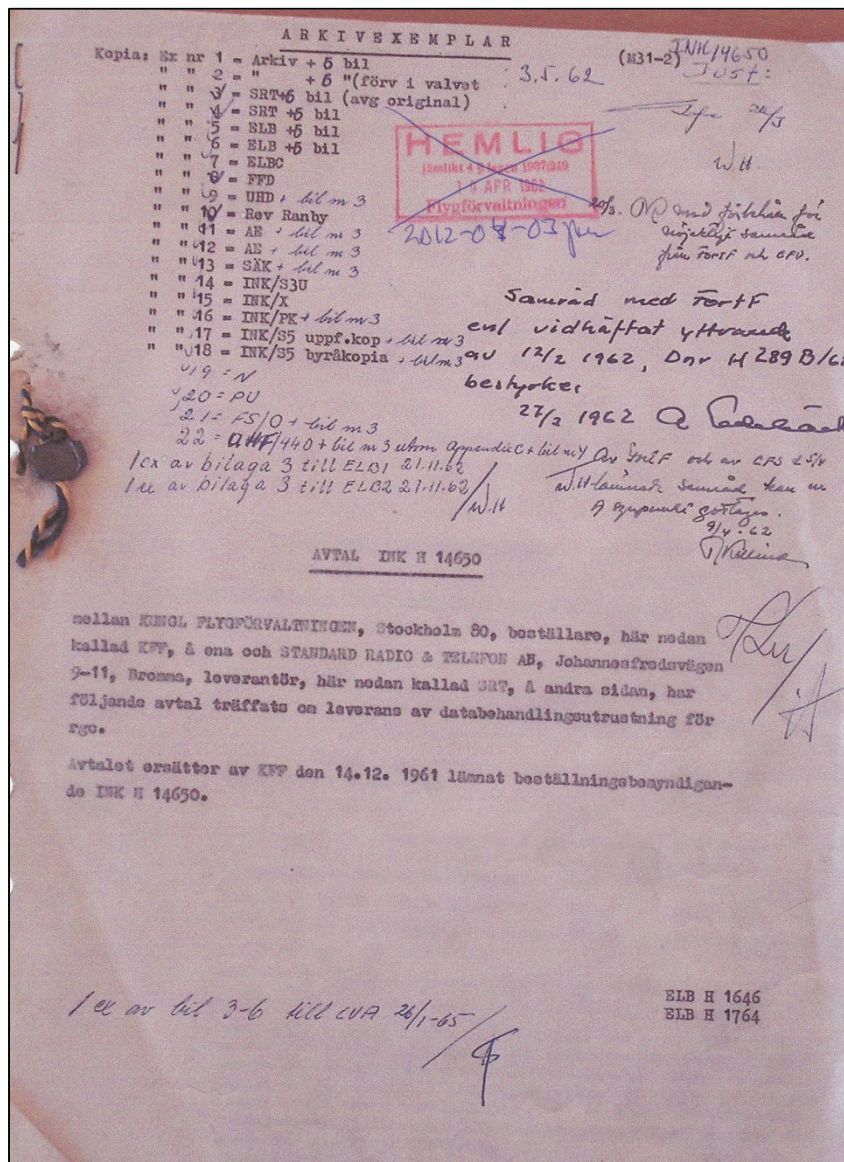 ARKIVEXEMPLAR
Kopia: Ex nr 1 = Arkiv + 6 bil
" " 2 = " + 6 "(förv i valvet
3.5.62
(M31-2)
INK/14650
Just:
" " 3 = SRT+6 bil (avg original)
" " 4 = SRT +6 bil
" " 5 = ELB +6 bil
" " 6 = ELB +6 bil
" " 7 = ELBC
" " 8 = FFD
" " 9 = UHD + bil nr 3
" " 10 = Rev Ranby
" " 11 = AE + bil nr 3
" " 12 = AE + bil nr 3
" " 13 = SÄK + bil nr 3
" " 14 = INK/S3U
" " 15 = INK/X
" " 16 = INK/PK + bil nr 3
" " 17 = INK/S5 uppf.kop + bil nr 3
" " 18 = INK/S5 byråkopia + bil nr 3
19 = N
20 = PU
21 = FS/O + bil nr 3
22 = /440 + bil nr 3 utom Appendix C + bil nr 4
1 ex av bilaga 3 till ELB1 21.11.62
1 ex av bilaga 3 till ELB2 21.11.62
W.H
HEMLIG
jämlikt 4 § lagen 1937:249
10 APR 1962
Flygförvaltningen
2012-04-03
W.H.
20/3. OK med
samråd
från FortF och CFV.
Samråd med FortF
enl vidhäftat yttrande
av 12/2 1962, Dnr H 289 B/62
bestyrkes
27/2 1962
Av och av CFS
samråd kan
synpunkt godtagas.
9/4.62
AVTAL INK H 14650
mellan KUNGL FLYGFÖRVALTNINGEN, Stockholm 80, beställare, här nedan
kallad KFF, å ena och STANDARD RADIO & TELEFON AB, Johannesfredsvägen
9-11, Bromma, leverantör, här nedan kallad SRT, å andra sidan, har
följande avtal träffats om leverans av databehandlingsutrustning för
rgc.
Avtalet ersätter av KFF den 14.12. 1961 lämnat beställningsbemyndigan-
de INK H 14650.
1 ex av bil 3-6 till CVA 26/1-65
ELB H 1646
ELB H 1764